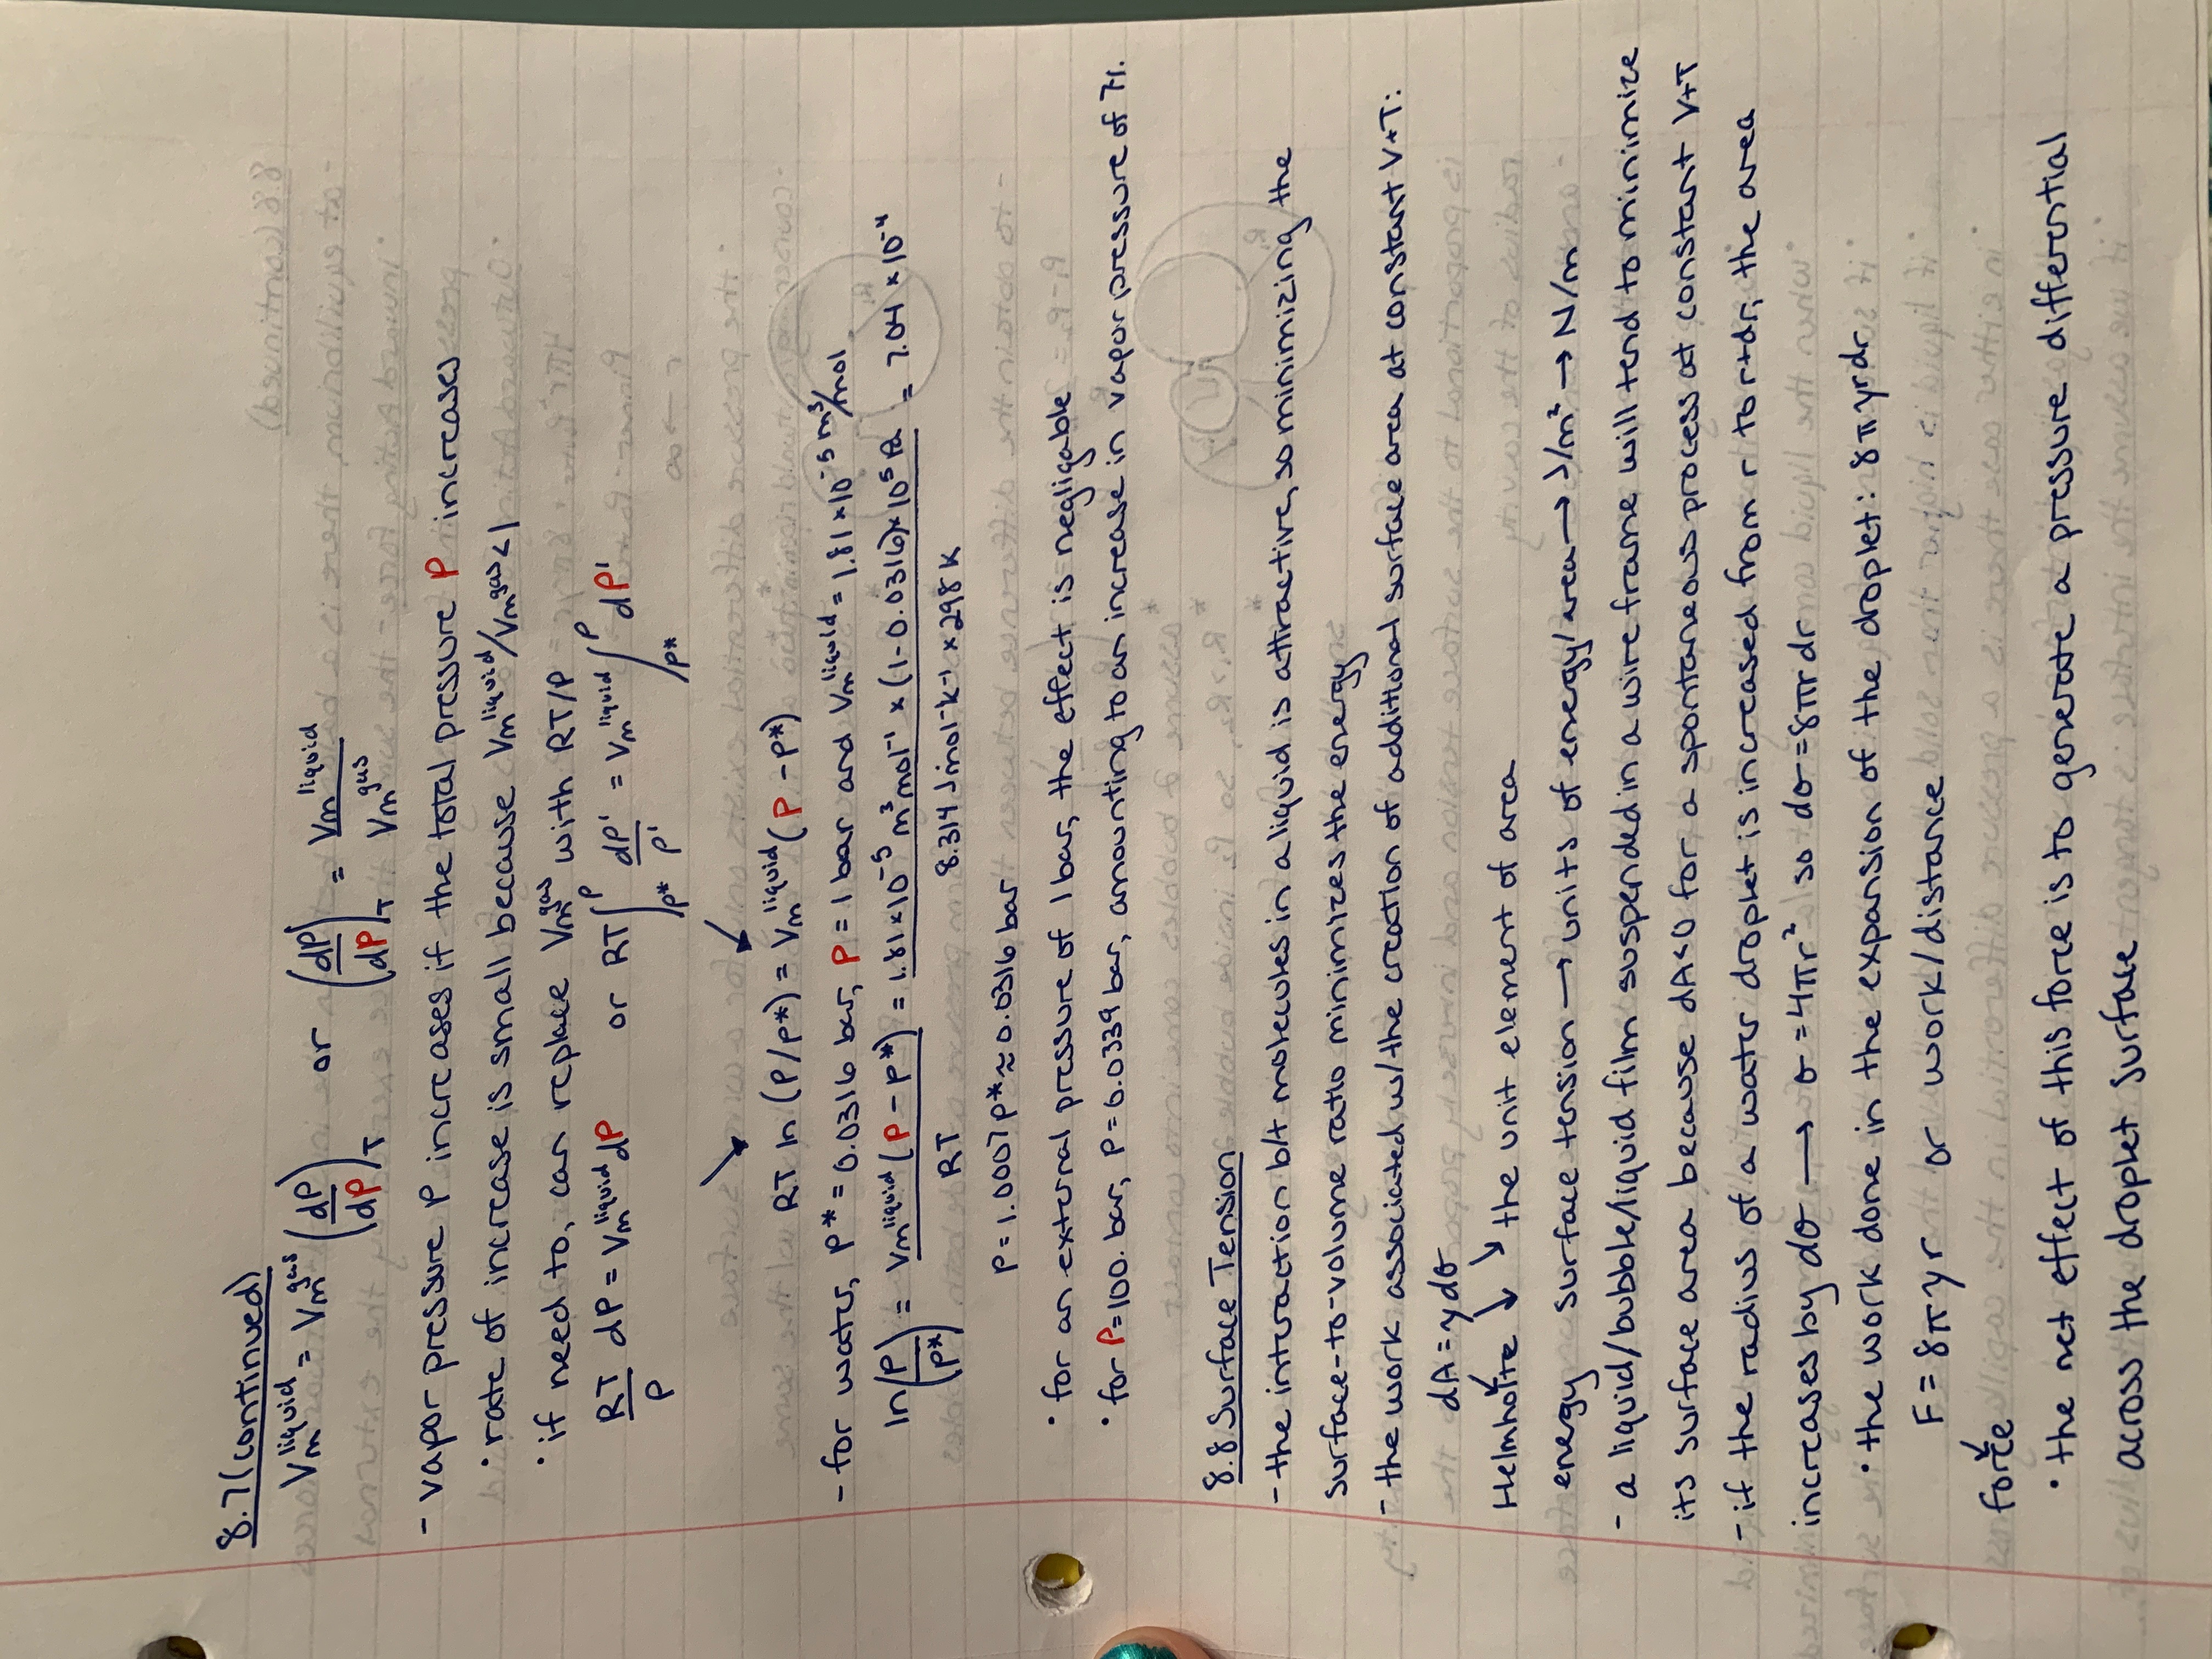 8.7 (continued)
Vm^liquid = Vm^gas (dP/dP)_T or (dP/dP)_T = Vm^liquid / Vm^gas
- vapor pressure P increases if the total pressure P increases
• rate of increase is small because Vm^liquid/Vm^gas < 1
• if need to, can replace Vm^gas with RT/P
RT/P dP = Vm^liquid dP or RT ∫_P*^P dP'/P' = Vm^liquid ∫_P*^P dP'
↘ ↙
RT ln (P/P*) = Vm^liquid (P - P*)
- for water, P* = 0.0316 bar, P = 1 bar and Vm^liquid = 1.81 × 10^-5 m³/mol
ln (P/P*) = Vm^liquid (P - P*) / RT = 1.81 × 10^-5 m³ mol^-1 × (1 - 0.0316) × 10^5 Pa / 8.314 J mol^- K^-1 × 298 K = 7.04 × 10^-4
P = 1.0007 P* ≈ 0.0316 bar
• for an external pressure of 1 bar, the effect is negligable
• for P = 100. bar, P = 0.0339 bar, amounting to an increase in vapor pressure of 7%.
8.8 Surface Tension
- the interaction b/t molecules in a liquid is attractive, so minimizing the
surface-to-volume ratio minimizes the energy
- the work associated w/ the creation of additional surface area at constant V+T:
dA = γdσ
Helmholtz ↓ ↘ the unit element of area
energy surface tension → units of energy/area → J/m² → N/m
- a liquid/bubble/liquid film suspended in a wire frame will tend to minimize
its surface area because dA<0 for a spontaneous process at constant V+T
- if the radius of a water droplet is increased from r to r+dr, the area
increases by dσ → σ = 4πr² so dσ = 8πrdr
• the work done in the expansion of the droplet: 8πγrdr
F = 8πγr or work/distance
force
• the net effect of this force is to generate a pressure differential
across the droplet surface